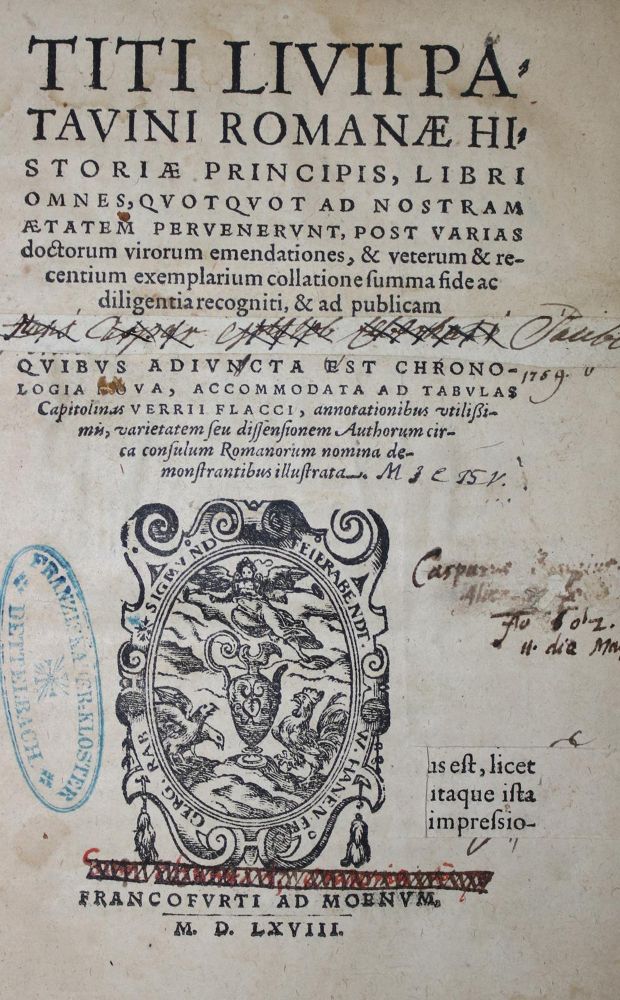 TITI LIVII PA-
TAVINI ROMANÆ HI-
STORIÆ PRINCIPIS, LIBRI
OMNES, QVOTQVOT AD NOSTRAM
ÆTATEM PERVENERVNT, POST VARIAS
doctorum virorum emendationes, & veterum & re-
centium exemplarium collatione summa fide ac
diligentia recogniti, & ad publicam
QVIBVS ADIVNCTA EST CHRONO-
LOGIA NOVA, ACCOMMODATA AD TABVLAS
1769.
Capitolinas VERRII FLACCI, annotationibus vtilißi-
mis, varietatem seu dissensionem Authorum cir-
ca consulum Romanorum nomina de-
monstrantibus illustrata.
SIGMVND FEIERABENDT
GERG. RAB W. HANEN FR
FRANZISKANER-KLOSTER
DETTELBACH
Casparus
11. die
us est, licet
itaque ista
impressio-
FRANCOFVRTI AD MOENVM,
M. D. LXVIII.